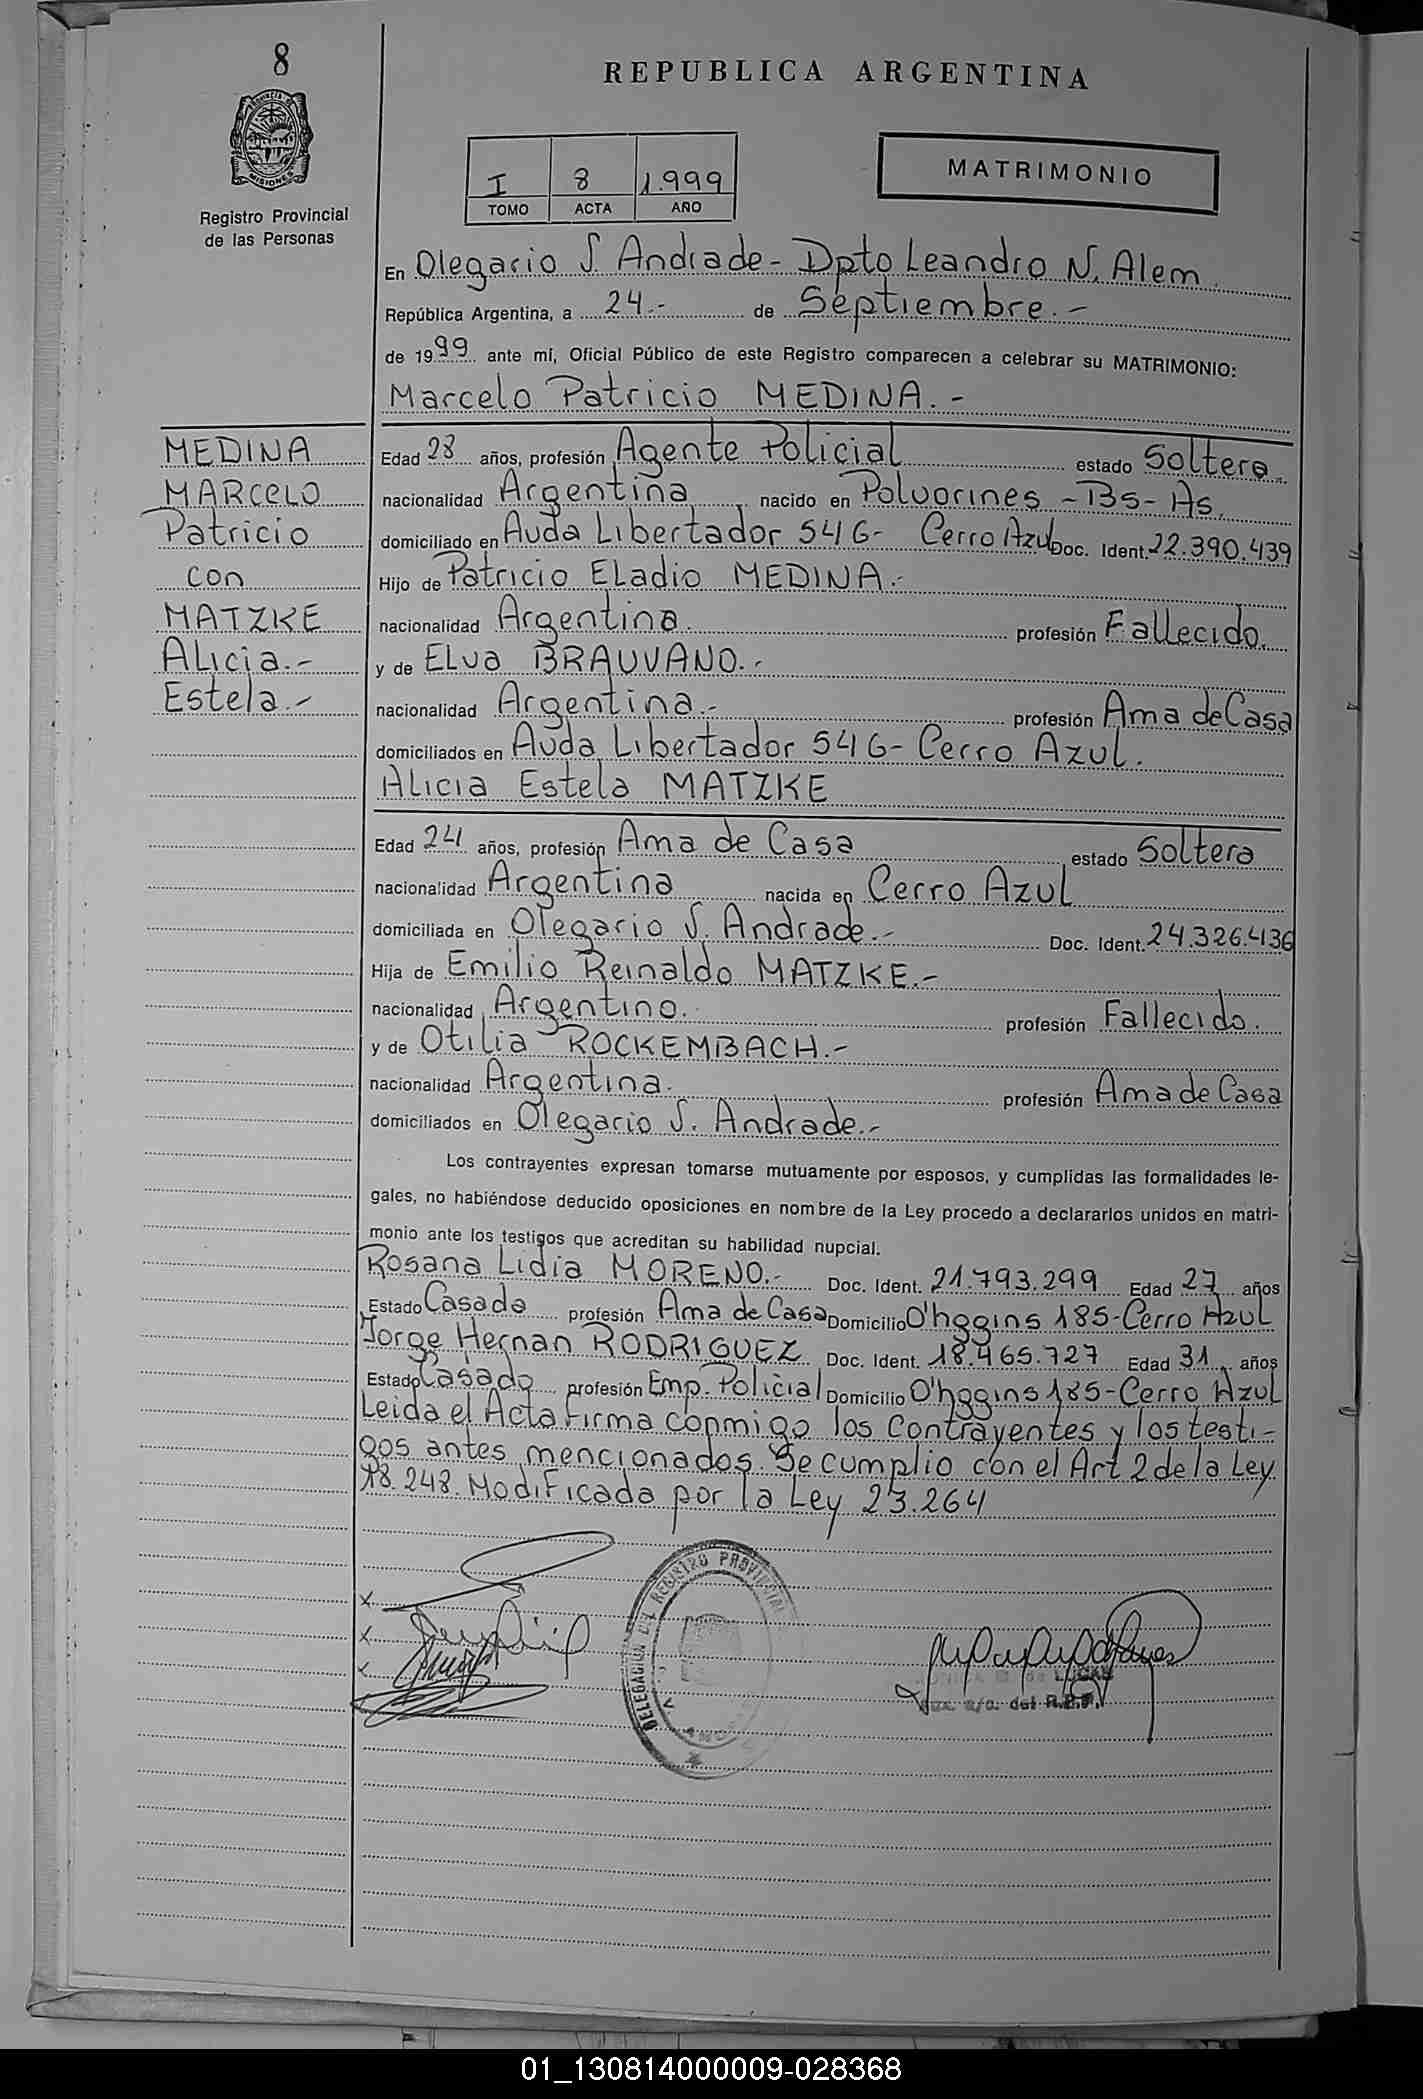 8
REPUBLICA ARGENTINA
PROVINCIA DE
MISIONES
Registro Provincial
de las Personas
I 8 1.999
TOMO ACTA AÑO
MATRIMONIO
En Olegario S. Andrade - Dpto Leandro N. Alem.
República Argentina, a 24.- de Septiembre.-
de 1999 ante mí, Oficial Público de este Registro comparecen a celebrar su MATRIMONIO:
Marcelo Patricio MEDINA.-
MEDINA
MARCELO
Patricio
con
MATZKE
Alicia.-
Estela.-
Edad 28 años, profesión Agente Policial estado Soltero.
nacionalidad Argentina nacido en Polvorines - Bs - As.
domiciliado en Avda Libertador 546 - Cerro Azul Doc. Ident. 22.390.439
Hijo de Patricio Eladio MEDINA.-
nacionalidad Argentina. profesión Fallecido.
y de Elva BRAUVANO.-
nacionalidad Argentina.- profesión Ama de Casa
domiciliados en Avda Libertador 546 - Cerro Azul.
Alicia Estela MATZKE
Edad 24 años, profesión Ama de Casa estado Soltera
nacionalidad Argentina nacida en Cerro Azul
domiciliada en Olegario S. Andrade.- Doc. Ident. 24.326.436
Hija de Emilio Reinaldo MATZKE.-
nacionalidad Argentino. profesión Fallecido.
y de Otilia ROCKEMBACH.-
nacionalidad Argentina. profesión Ama de Casa
domiciliados en Olegario S. Andrade.-
Los contrayentes expresan tomarse mutuamente por esposos, y cumplidas las formalidades le-
gales, no habiéndose deducido oposiciones en nombre de la Ley procedo a declararlos unidos en matri-
monio ante los testigos que acreditan su habilidad nupcial.
Rosana Lidia MORENO.- Doc. Ident. 21.793.299 Edad 27 años
Estado Casada profesión Ama de Casa Domicilio O'hggins 185 - Cerro Azul
Jorge Hernan RODRIGUEZ Doc. Ident. 18.465.727 Edad 31 años
Estado Casado profesión Emp. Policial Domicilio O'hggins 185 - Cerro Azul
Leida el Acta Firma conmigo los contrayentes y los testi-
gos antes mencionados. Se cumplio con el Art 2 de la Ley
18.248. Modificada por la Ley 23.264
DELEGACION DEL REGISTRO PROVINCIAL
del R.P.P.
01_130814000009-028368